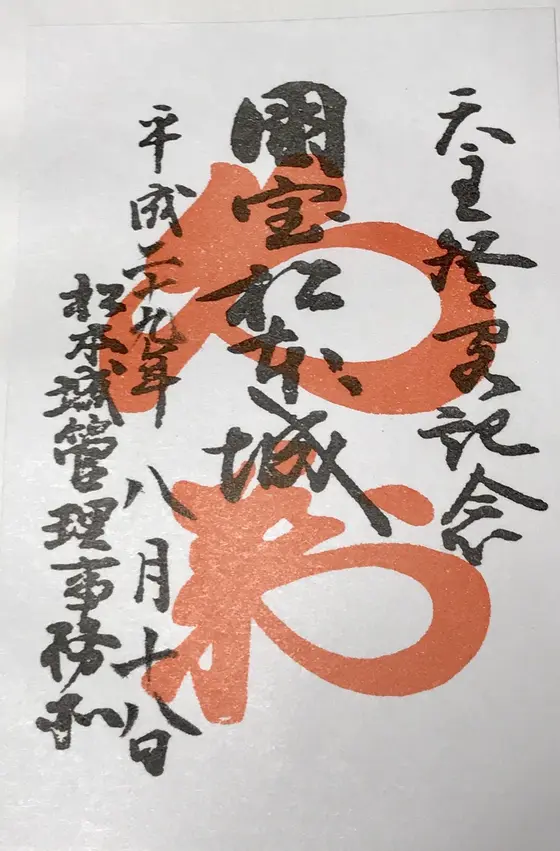 天主登閣記念
國宝松本城
平成二十九年 八月十八日
松本城管理事務所